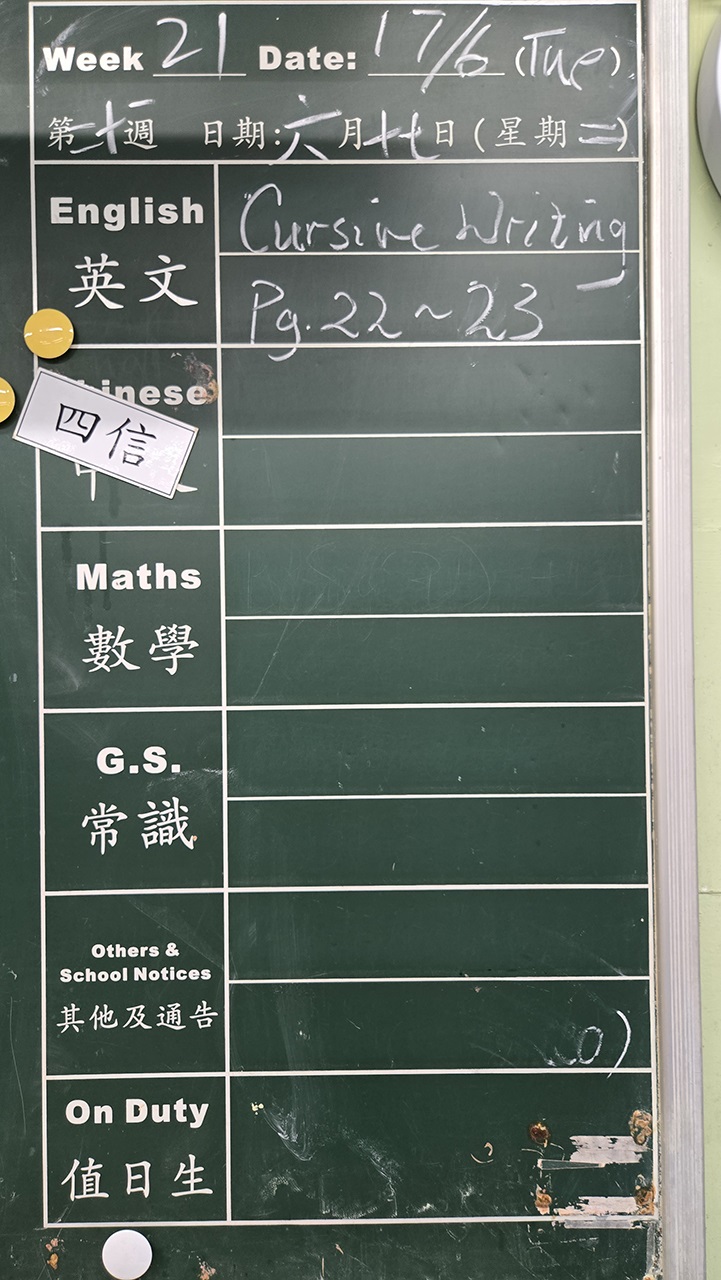 Week 21 Date: 17/6 (Tue)
第二十一週 日期:六月十七日(星期二)
English
Cursive Writing
英文
Pg. 22~23
Chinese
四信
Maths
數學
G.S.
常識
Others &
School Notices
其他及通告
On Duty
值日生